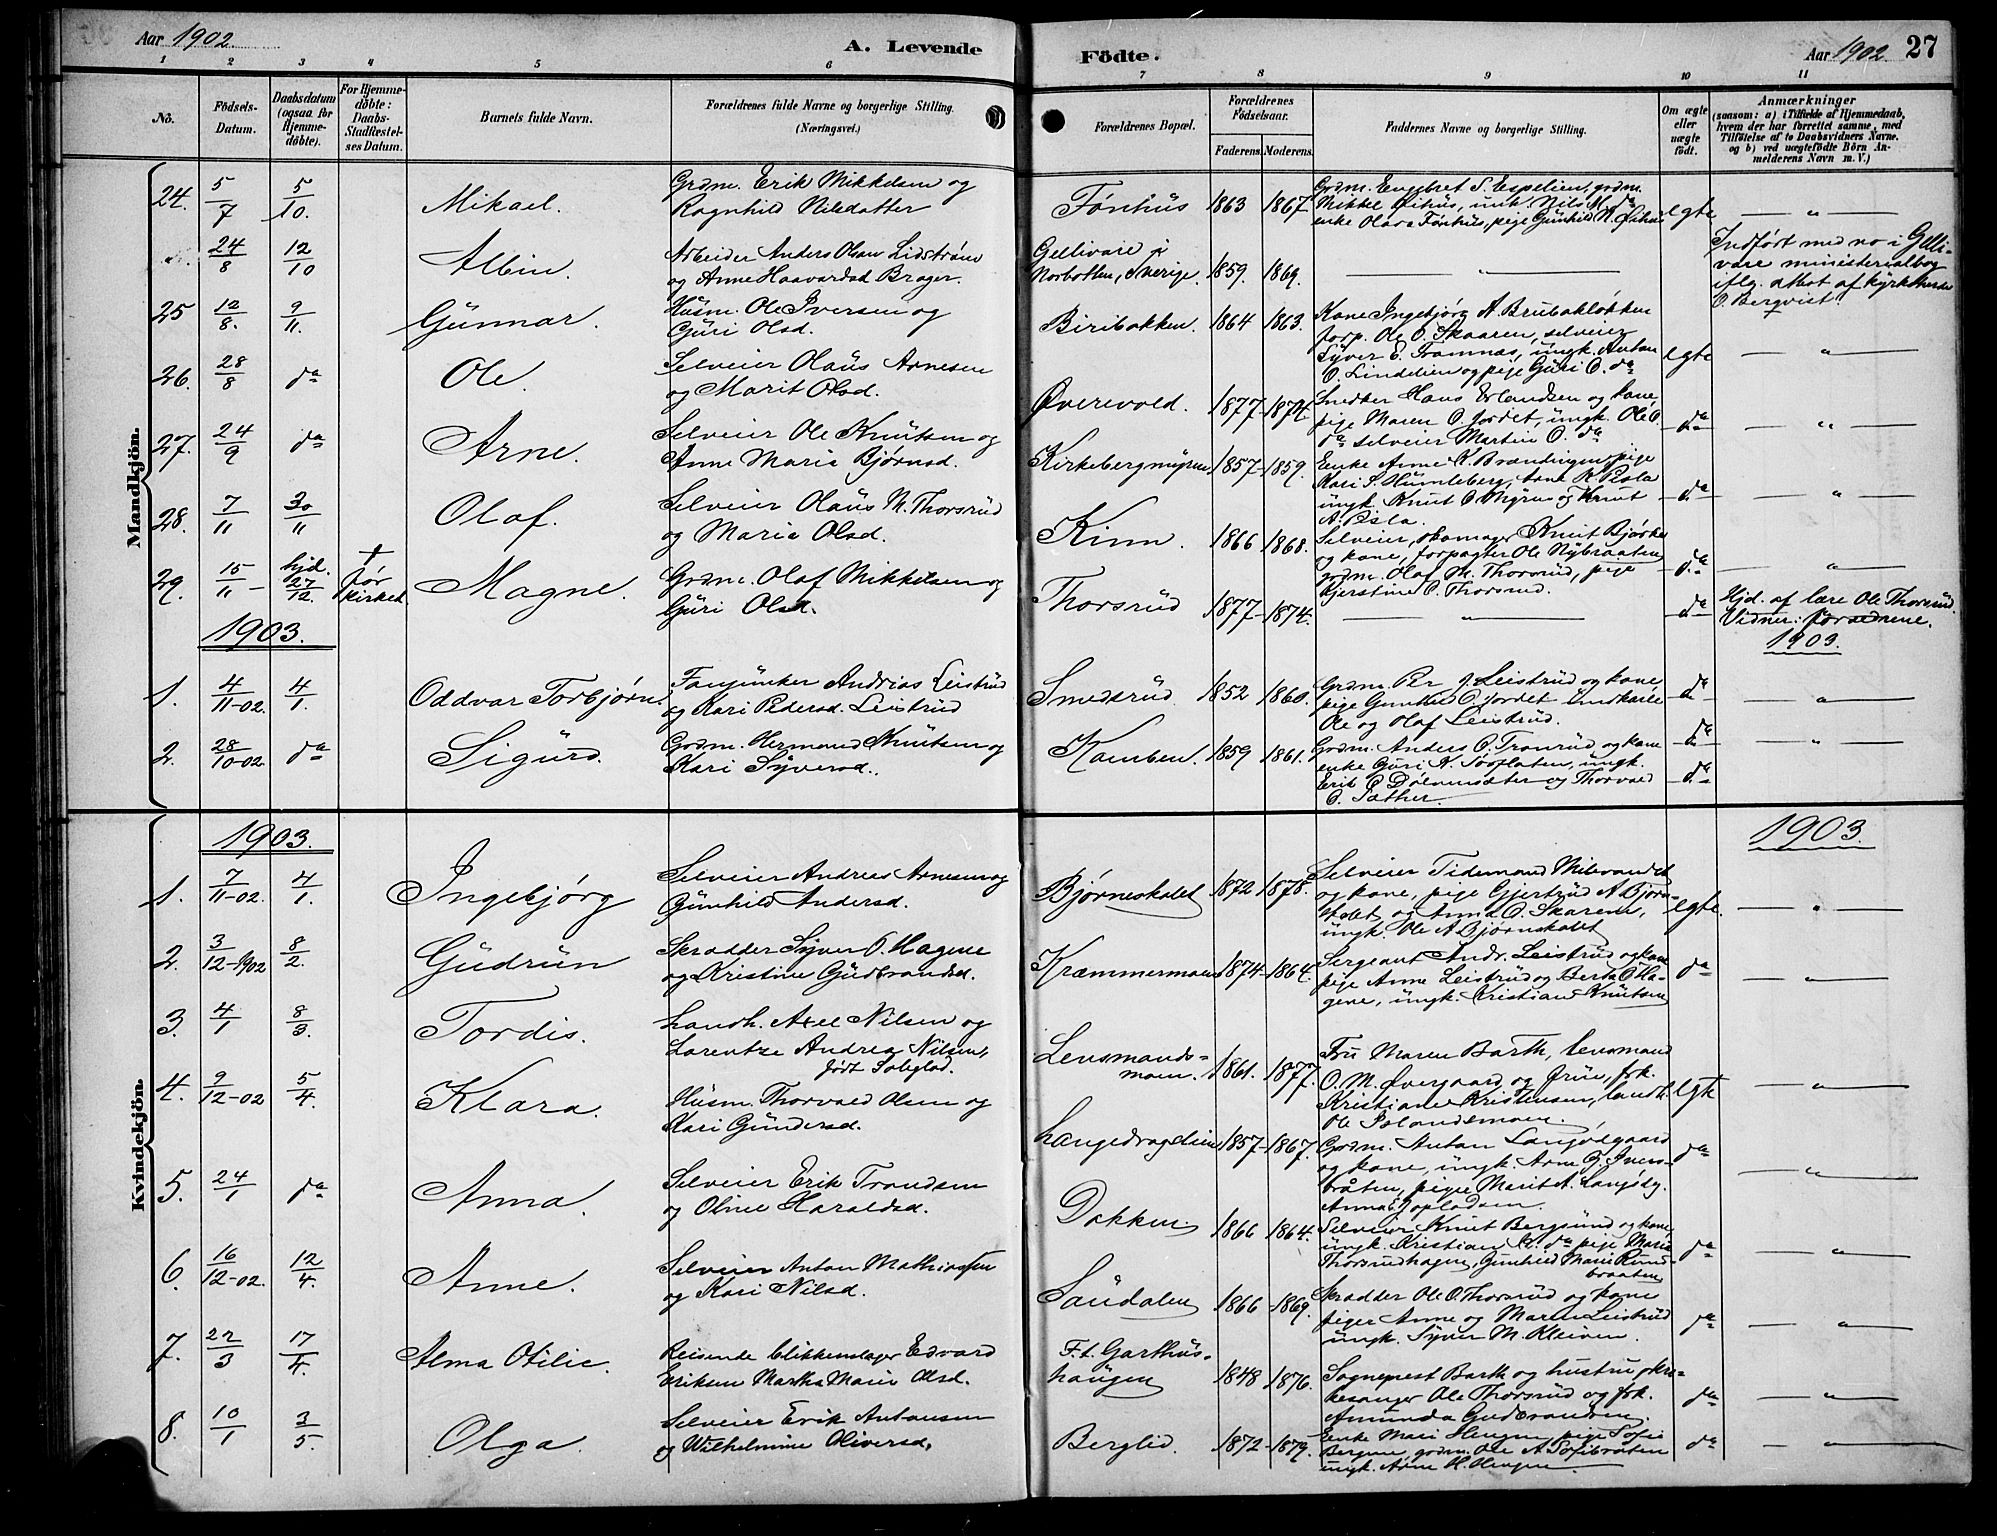 Aar 1902.
A. Levende
Födte.
Aar 1902.
27
1 2 3 4 5 6 7 8 9 10 11
No.
Födsels-
Datum.
Daabsdatum
(ogsaa for
Hjemme-
döbte).
For Hjemme-
döbte:
Daabs-
Stadfæstel-
ses Datum.
Barnets fulde Navn.
Forældrenes fulde Navne og borgerlige Stilling.
(Næringsvei.)
Forældrenes Bopæl.
Forældrenes
Födselsaar.
Faderens. Moderens.
Faddernes Navne og borgerlige Stilling.
Om ægte
eller
uægte
födt.
Anmærkninger
(saasom: a) i Tilfælde af Hjemmedaab,
hvem der har forrettet samme, med
Tilföielse af to Daabsvidners Navne.
og b) ved uægtefödte Börn An-
melderens Navn m. V.)
Mandkjön.
24. 5/7 5/10. Mikael. Grdm. Erik Mikkelsen og
Ragnhild Nilsdatter
Fønhus 1863 1867
Grdm. Engebret S. Espelien, grdm.
enke Olava Fønhus, pige Gunhild N. Øihus
egte — " —
24/8 12/10 Albin. Arbeider Anders Olsen Lidstrøm
og Anne Haavardsd Brager.
Gellivare i
Norbotten, Sverige. 1859. 1869. — " —
Indført med no i Gelli-
vare ministerialbog
iflg. attest af kyrkoherde
O. Bergvist.
25 12/8. 9/11. Gunnar. Husm. Ole Iversen og
Guri Olsd.
Biribakken. 1864 1863.
Kone Ingebjørg A. Brubakløkken
forp. Ole O. Skaaren, selveier
Syver E. Tramnæs, ungk. Anton
O. Lindelien og pige Guri O. da
egte — " —
26. 28/8 da Ole. Selveier Olaus Arnesen
og Marit Olsd.
Øverevold. 1877 - 1874.
Snedker Hans Erlandsen og kone,
pige Maren O. Jordet, ungk. Ole O.
da selveier Martin O. da
da — " —
27. 24/9 da Arne. Selveier Ole Knutsen og
Anne Maria Bjørnsd.
Kirkebergmyren 1857 - 1859.
Enke Anne K. Brændingen, pige
Kari S. Humleberg, Arne K Pisla
ungk. Knut O Myren og Knut
A. Pisla.
da — " —
28. 7/11 30/11 Olaf. Selveier Olaus M. Thorsrud
og Maria Olsd.
Kinn. 1866 1868.
Selveier, skomager Knut Bjørke
og kone, forpagter Ole Nybraaten
grdm. Olaf M. Thorsrud, pige
Kjerstine O. Thorsrud.
da — " —
29. 15/11 - hjd. 27/12. † før kirked. Magne. Grdm. Olaf Mikkelsen og
Guri Olsd.
Thorsrud 1877 - 1874. — " —
da Hjd. af lære Ole Thorsrud.
Vidner: forældrene.
1903.
1903.
1. 4/11-02. 4/1 Oddvar Torbjørn. Fanjunker Andrias Leistrud
og Kari Pedersd. Leistrud
Smedsrud 1852 1860.
Grdm. Per J. Leistrud og kone
pige Gunhild O Jordet
Ole og Olaf Leistrud.
da — " —
2. 28/10-02 da Sigurd. Grdm. Hermand Knutsen og
Kari Syversd.
Kamben. 1859 1861.
Grdm. Anders O. Tronrud og kone
enke Guri K. Sooplaten, ungk.
Erik O Dølvensæter og Thorvald
O. Sæther.
da — " —
da
Kvindekjön.
1903.
1903.
1. 7/11-02. 4/1. Ingebjørg Selveier Andrias Arnesen og
Gunhild Andersd.
Bjørneskalet 1872 1878.
Selveier Tidemand Milevandet
og kone, pige Gjertrud A Bjørn-
skalet og Anna O. Skaren,
ungk. Ole A Bjørnskalet
egte. — " —
2. 3/12-1902 8/2. Gudrun Skrædder Syver O. Hagene
og Kristine Gudbrandsd.
Kræmmermoen 1874 - 1864.
Sergeant Andr. Leistrud og kone
pige Anne Leistrud og Berta O. Ha-
gene, ungk. Kristian Knutsen
da — " —
3. 4/1 8/3. Tordis. Landh. Axel Nilsen og
Larentze Andrea Nilsen,
født Solyglad.
Lensmands-
moen. 1861. 1877.
Fru Maren Barth, lensmand
O. M. Øvergaard og frue, frk.
Kristiane Kristensen, landh.
Ole Islandsmoen.
egte — " —
4. 9/12-02 5/4. Klara. Husm. Thorvald Olsen og
Kari Gundersd.
Langedragelien 1857 - 1867.
Grdm. Anton Langødegaard
og kone, ungk. Arne G. Ivers-
bråten, piger Marit A. Langødg.
da — " —
5. 24/1 da Anna. Selveier Erik Trondsen
og Oline Haraldsd.
Dokken 1866 1864.
Selveier Knut Bergsund og kone,
ungk. Kristian K. da pige Maria
Thorsrudhagen, Gunhild Marie Rund-
braaten
da — " —
6. 16/12-02. 12/4. Anne. Selveier Anton Mathiassen
og Kari Nilsd.
Saudalen 1866 - 1869.
Skrædder Ole O. Thorsrud og kone
piger Anne og Maren Leistrud
ungk. Syver M. Kleiven.
da — " —
7. 22/3 17/4. Alma Otilie. Reisende blikkenslager Edvard
Eriksen Martha Marie Olsd.
F.t. Garthus-
haugen 1848 1876.
Sogneprest Barth og hustru, kir-
kesanger Ole Thorsrud og frk.
Amunda Gudbrandsen.
da — " —
8. 10/1 3/5. Olga. Selveier Erik Antonsen
og Wilhelmine Oliversd.
Berglid. 1872 - 1879.
Enke Mari Hengen, pige Sofie
Bergene, grdm. Ole A Sofibraten
ungk. Arne H. Hengen
da — " —